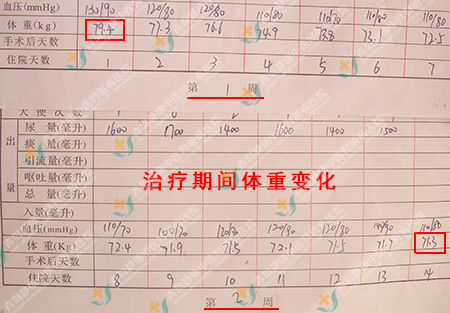 血压(mmHg) 130/90 120/80 120/80 110/80 110/70 110/80 110/80
体 重(kg) 79.4 77.3 76.6 74.9 73.8 73.1 72.5
手术后天数
住院天数 1 2 3 4 5 6 7
第 1 周
大便次数
出 尿 量(毫升) 1600 1700 1400 1600 1400 1500
痰 量(毫升)
引流量(毫升)
呕吐量(毫升)
量 总 量(毫升)
治疗期间体重变化
入量(毫升)
血压(mmHg) 110/70 100/70 120/80 120/80 120/80 110/80
体 重(Kg) 72.4 71.9 71.5 72.1 71.5 71.7 71.3
手术后天数
住院天数 8 9 10 11 12 13 14
第 2 周